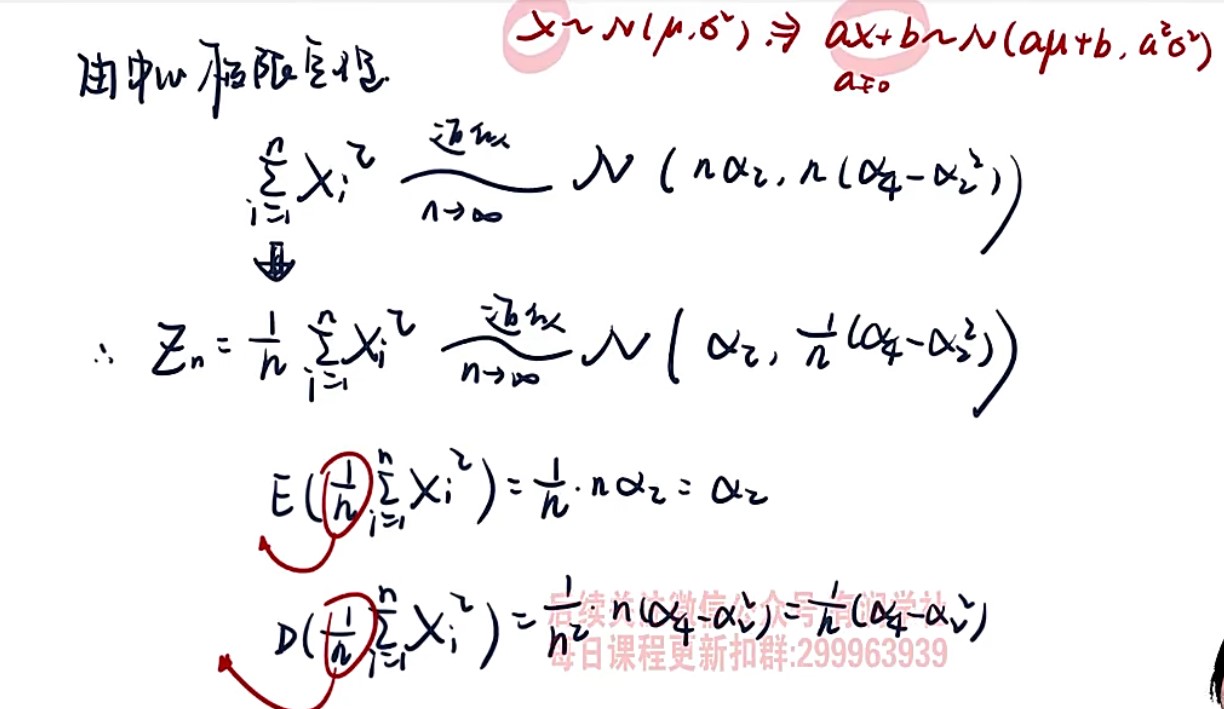 X~N(μ,σ²) ⇒ aX+b~N(aμ+b, a²σ²)
a≠0
由中心极限定理
∑_{i=1}^{n} X_i² ~ 近似 n→∞ N(nα₂, n(α₄-α₂²))
⇓
∴ Z_n = 1/n ∑_{i=1}^{n} X_i² ~ 近似 n→∞ N(α₂, 1/n(α₄-α₂²))
E(1/n ∑_{i=1}^{n} X_i²) = 1/n · nα₂ = α₂
D(1/n ∑_{i=1}^{n} X_i²) = 1/n² · n(α₄-α₂²) = 1/n(α₄-α₂²)
后续关注微信公众号:有润学社
每日课程更新扣群:299963939